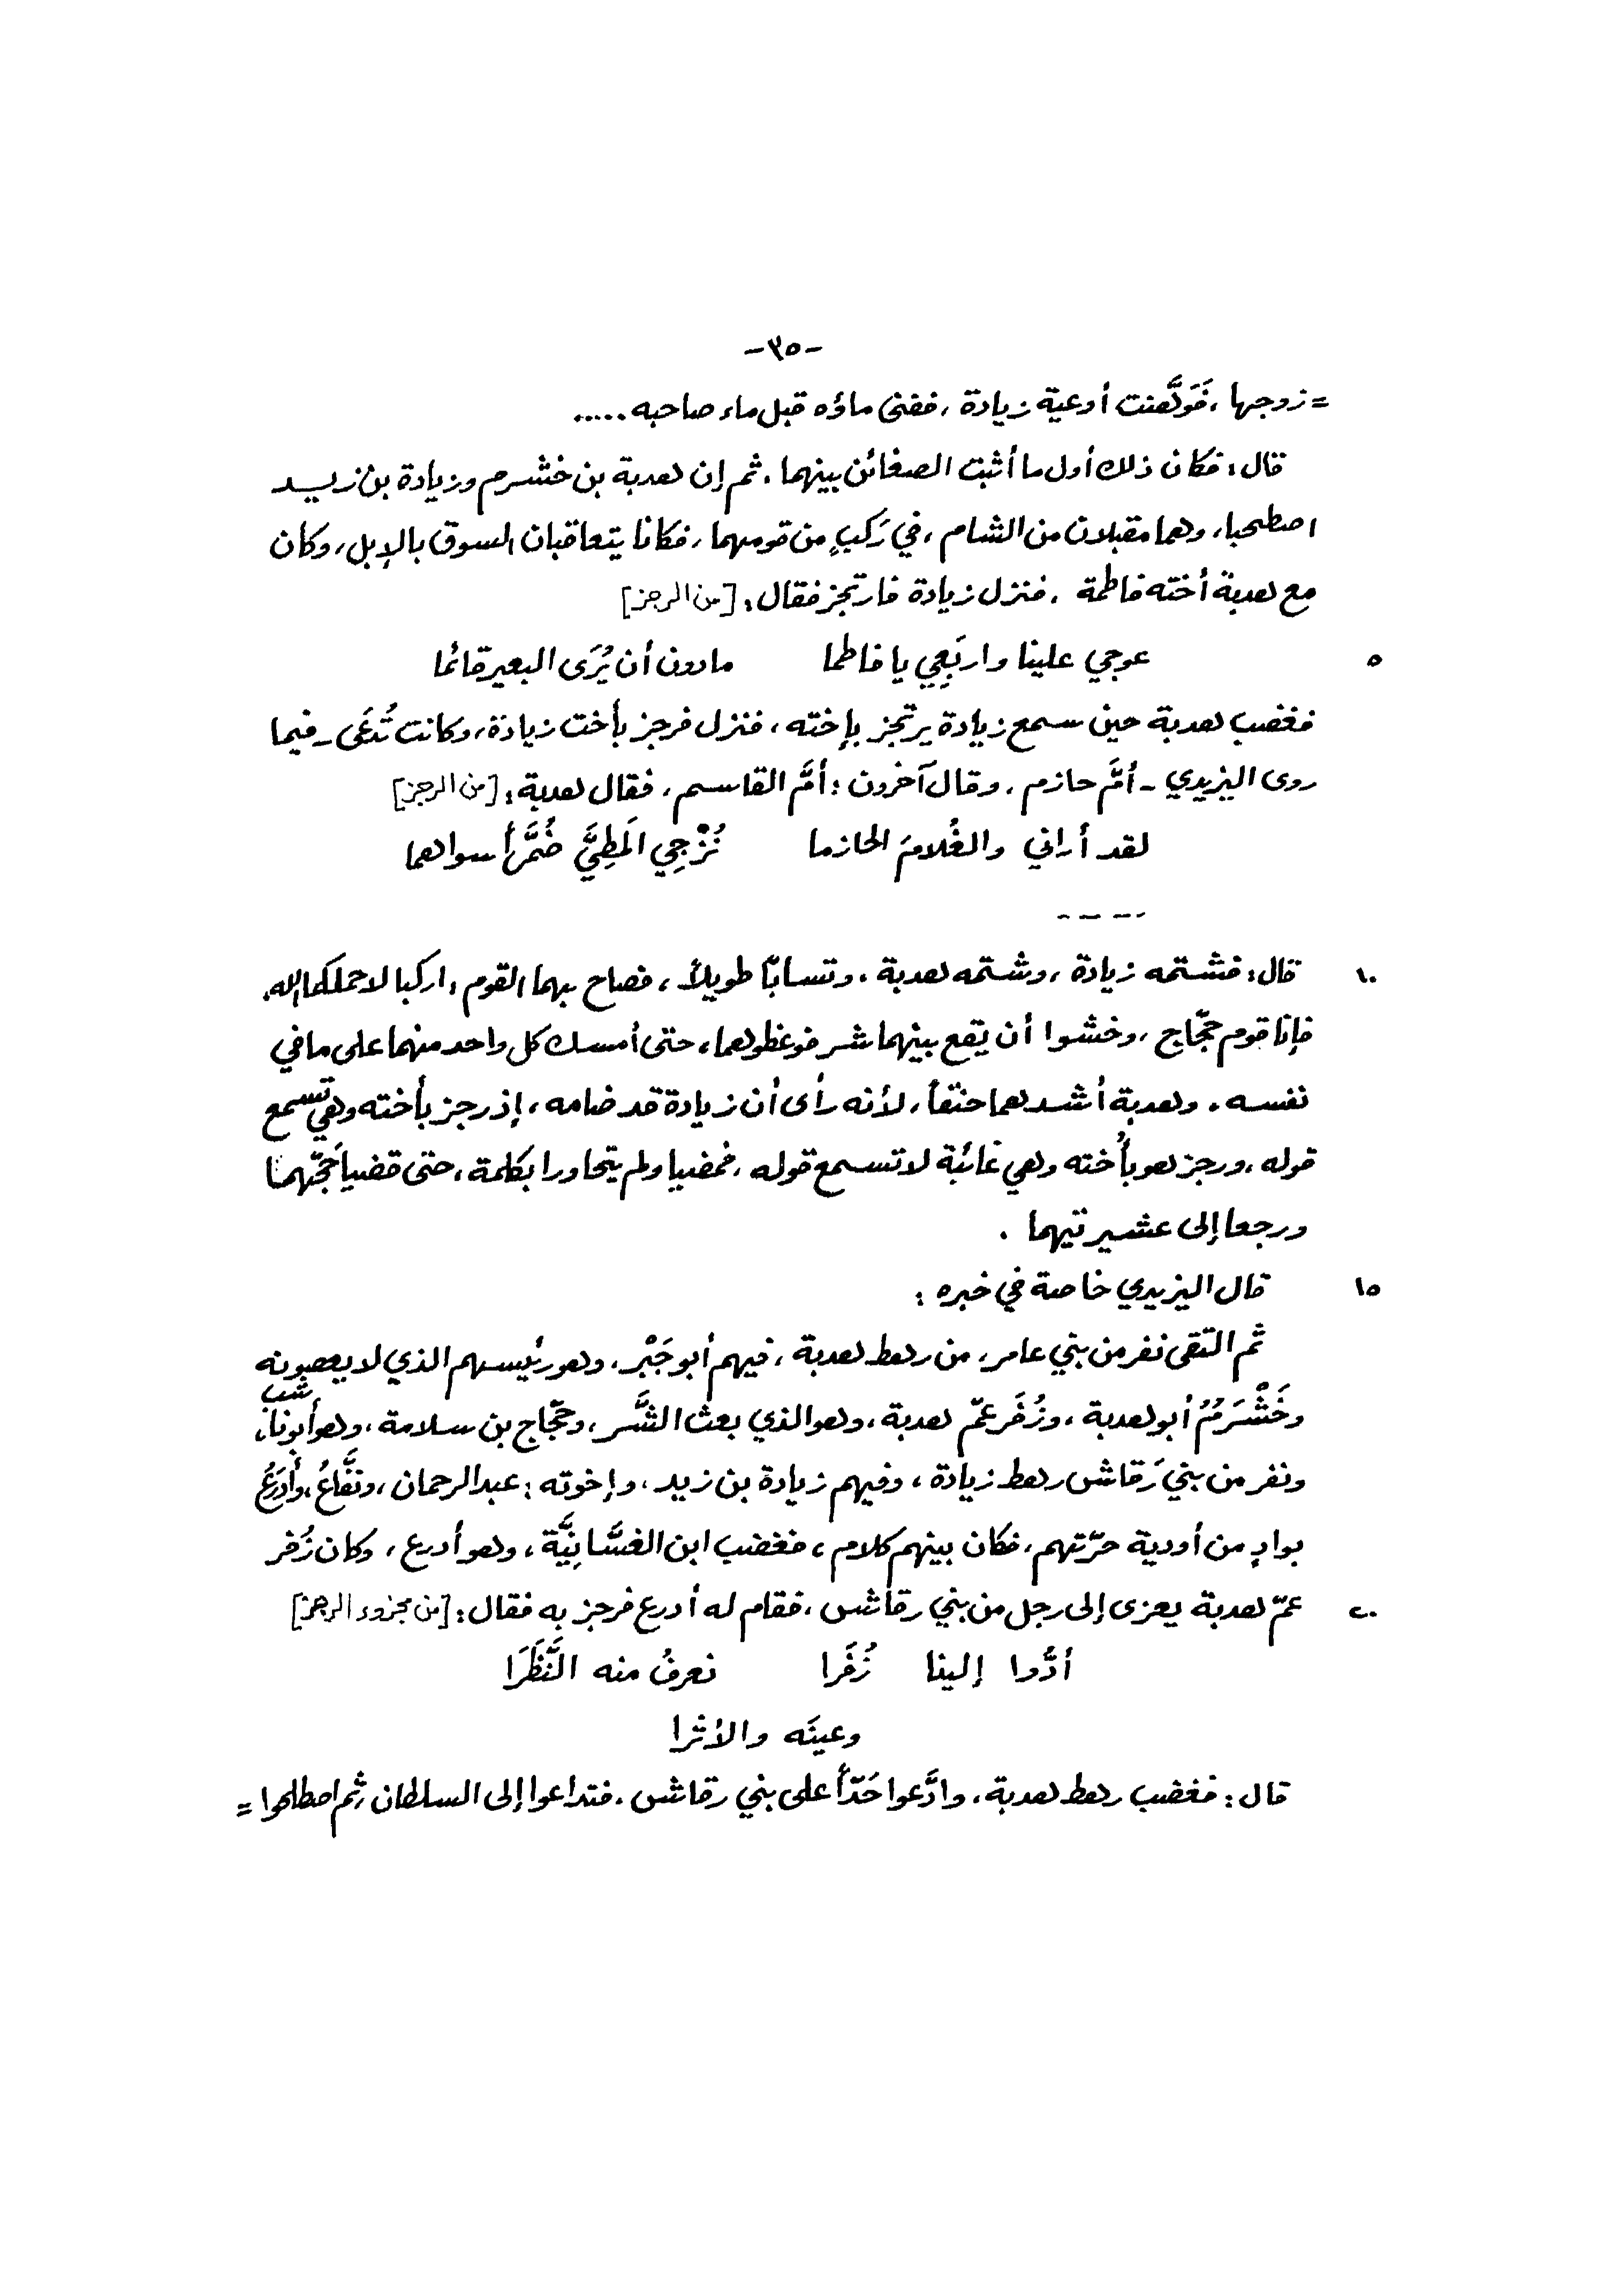 -٣٥-
= زوجها ، فَوَلَّهنت أوعية زيادة ، ففنى ماؤه قبل ماء صاحبه .....
قال : فكان ذلك أول ما أثبت الضغائن بينهما . ثم إن هدبة بن خشرم وزيادة بن زيد
اصطحبا ، وهما مقبلان من الشام ، في رَكبٍ من قومهما ، فكانا يتعاقبان السوق بالإبل ، وكان
مع هدبة أخته فاطمة ، فنزل زيادة فارتجز فقال : [من الرجز]
٥ عوجي علينا واربَعِي يا فاطما مادون أن يُرَى البعير قائما
فغضب هدبة حين سمع زيادة يرتجز بإخته ، فنزل فرجز بأخت زيادة ، وكانت تُدعَى - فيما
روى اليزيدي - أمَّ حازم ، وقال آخرون : أمَّ القاسم ، فقال هدبة : [من الرجز]
لقد أراني والغُلامَ الحازما نُزْجِي المَطِيَّ ضُمَّراً سواهما
- - - -
١٠ قال : فشتمه زيادة ، وشتمه هدبة . وتسابّا طويلاً ، فصاح بهما القوم : اركبا لاحملكما الله .
فإنا قوم حجّاج ، وخشوا أن يقع بينهما شر فوعظوهما ، حتى أمسك كل واحد منهما على ما في
نفسه . وهدبة أشدهما حنقاً ، لأنه رأى أن زيادة قد ضامه ، إذ رجز بأخته وهي تسمع
قوله ، ورجز هو بأُخته وهي غائبة لا تسمع قوله ، فمضيا ولم يتحاورا بكلمة ، حتى قضيا حَجّهما
ورجعا إلى عشيرتيهما .
١٥ قال اليزيدي خاصة في خبره :
ثم التقى نفر من بني عامر ، من رهط هدبة ، فيهم أبو جَبْر ، وهو رئيسهم الذي لا يعصونه
وخَشْرَمُ أبو هدبة ، وزُفَر عمّ هدبة ، وهو الذي بعث الشَّر ، وحجّاج بن سلامة ، وهو أبو ناشب ،
ونفر من بني رَقاش رهط زيادة ، وفيهم زيادة بن زيد ، وإخوته : عبدالرحمان ، ونفَّاعُ ، وأَدرَعُ
بوادٍ من أودية حرّتهم ، فكان بينهم كلام ، فغضب ابن الغسَّانِيَّة ، وهو أدرع ، وكان زُفر
٢٠ عمّ هدبة يعزى إلى رجل من بني رقاش ، فقام له أدرع فرجز به فقال : [من مجزوء الرجز]
أدُّوا إلينا زُفَرا نعرفُ منه النَّظَرَا
وعينَه والأثرا
قال : فغضب رهط هدبة ، وادَّعوا حَدّاً على بني رقاش . فتداعوا إلى السلطان ، ثم اصطلحوا =